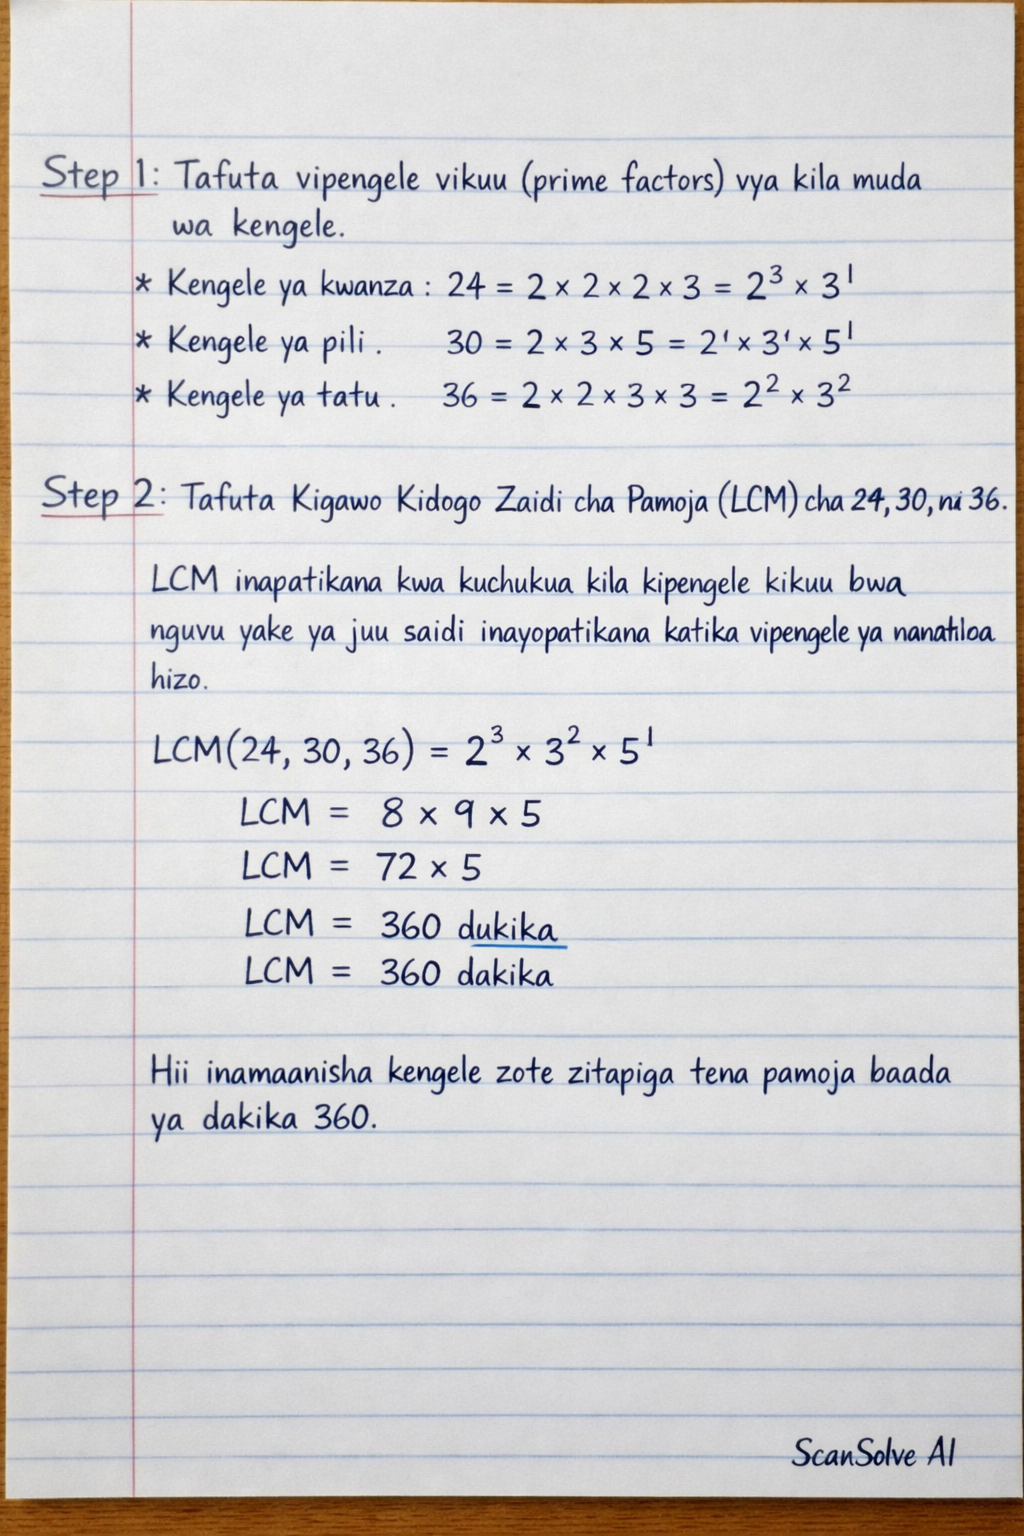 Step 1: Tafuta vipengele vikuu (prime factors) vya kila muda
wa kengele.
* Kengele ya kwanza : 24 = 2 × 2 × 2 × 3 = 2³ × 3¹
* Kengele ya pili . 30 = 2 × 3 × 5 = 2¹ × 3¹ × 5¹
* Kengele ya tatu . 36 = 2 × 2 × 3 × 3 = 2² × 3²
Step 2: Tafuta Kigawo Kidogo Zaidi cha Pamoja (LCM) cha 24, 30, 36.
LCM inapatikana kwa kuchukua kila kipengele kikuu bwa
nguvu yake ya juu saidi inayopatikana katika vipengele ya
hizo.
LCM(24, 30, 36) = 2³ × 3² × 5¹
LCM = 8 × 9 × 5
LCM = 72 × 5
LCM = 360 dukika
LCM = 360 dakika
Hii inamaanisha kengele zote zitapiga tena pamoja baada
ya dakika 360.
ScanSolve AI